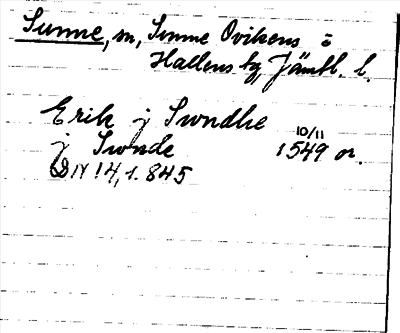 Sunne, m, Sunne Ovikens o
Hallens tg, Jämtl. l.
Erik j Swndhe
j Swnde 10/11 1549 or.
DN 14, s. 845